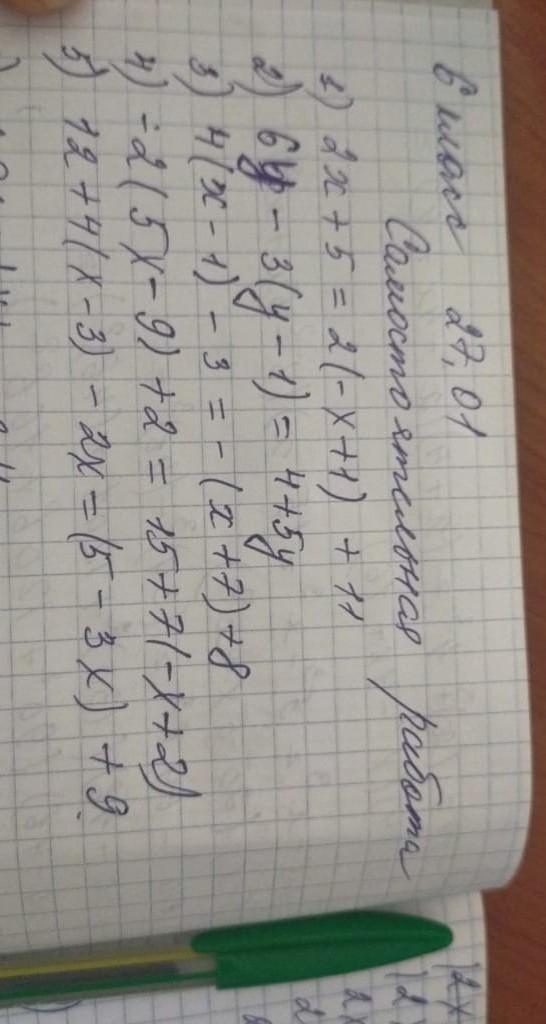 6 класс 27,01
Самостоятельная работа
1) 2x + 5 = 2(-x+1) + 11
2) 6y - 3(y - 1) = 4+5y
3) 4(x - 1) - 3 = - (x + 7) + 8
4) -2(5x - 9) + 2 = 15 + 7(-x + 2)
5) 12 + 4(x - 3) - 2x = (5 - 3x) + 9